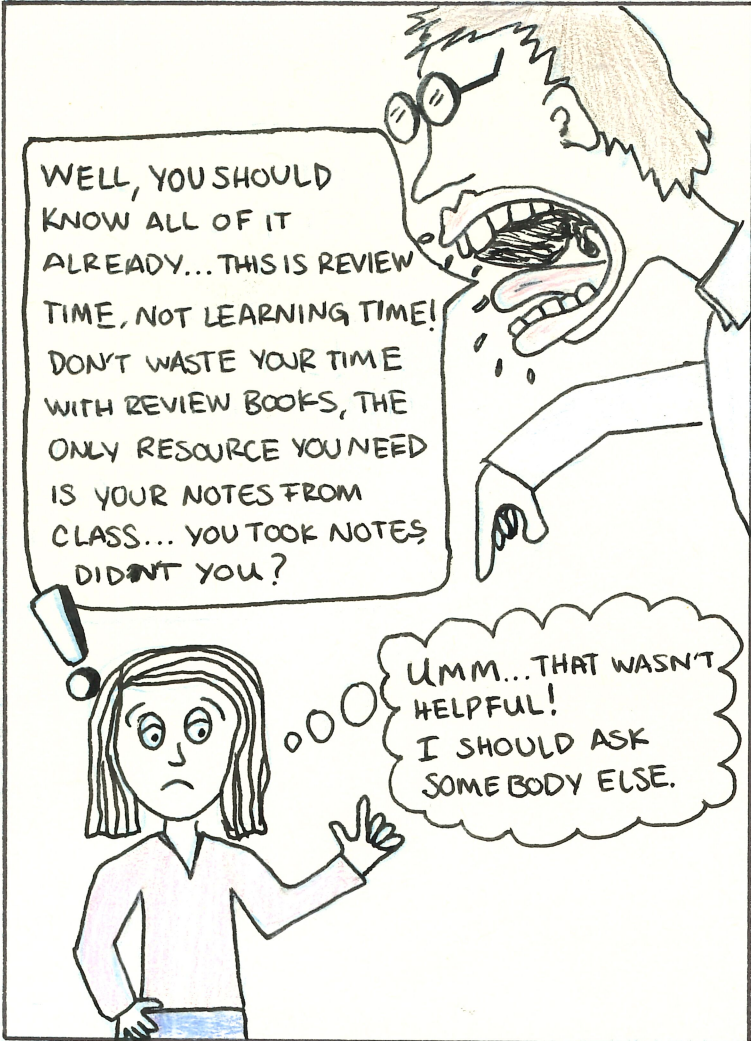 WELL, YOU SHOULD
KNOW ALL OF IT
ALREADY... THIS IS REVIEW
TIME, NOT LEARNING TIME!
DON'T WASTE YOUR TIME
WITH REVIEW BOOKS, THE
ONLY RESOURCE YOU NEED
IS YOUR NOTES FROM
CLASS... YOU TOOK NOTES
DIDN'T YOU?
!
UMM... THAT WASN'T
HELPFUL!
I SHOULD ASK
SOMEBODY ELSE.